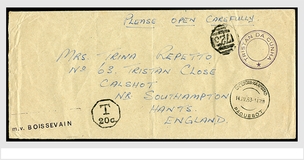 PLEASE OPEN CAREFULLY
TRISTAN DA CUNHA
MRS TRINA REPETTO
No 63 TRISTAN CLOSE
CALSHOT
NR SOUTHAMPTON
HANTS
ENGLAND.
T
20c.
PAQUEBOT
m.v. BOISSEVAIN